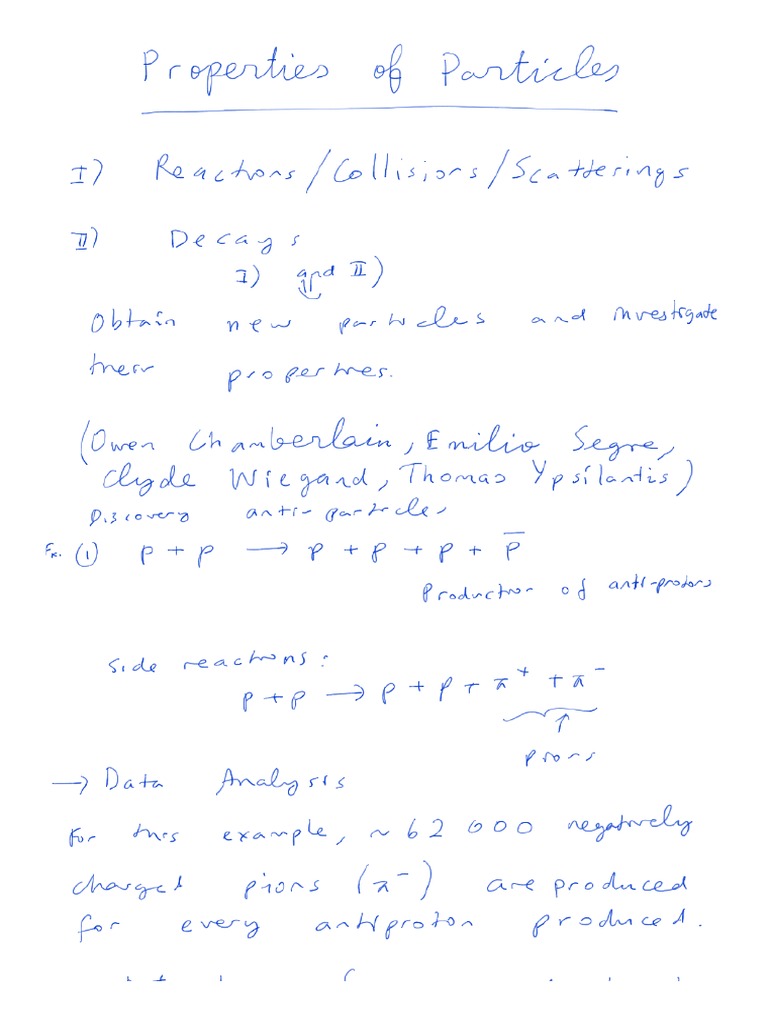 Properties of Particles
I) Reactions/Collisions/Scatterings
II) Decays
I) and II)
Obtain new particles and investigate
their properties.
(Owen Chamberlain, Emilio Segre,
Clyde Wiegand, Thomas Ypsilantis)
Discovery anti-particles
Ex. (1) p + p → p + p + p + p̅
Production of anti-protons
Side reactions:
p + p → p + p + π⁺ + π⁻
↑
pions
→ Data Analysis
For this example, ~ 62 000 negatively
charged pions (π⁻) are produced
for every antiproton produced.